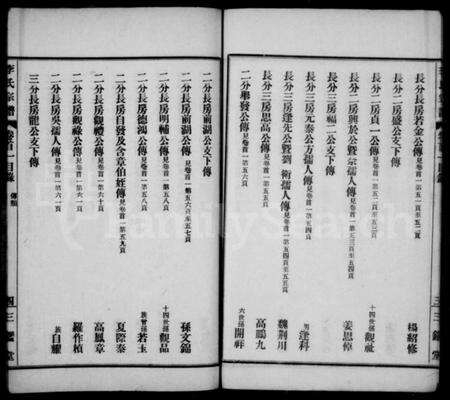 長分長房若金公傳見卷首一第五一頁至五二頁 楊紹修
長分二房盛公支下傳
長分二房貞一公傳見卷首一第五二頁至五三頁 十四世孫觀祉
長分二房興於公暨宗孺人傳見卷首一第五三頁至五四頁 姜思悼
長分三房福二公支下傳
長分三房元泰公方孺人傳見卷首一第五四頁 男逢科
長分三房逢先公暨劉衛孺人傳見卷首一第五四頁至五五頁 魏荆川
長分三房思高公傳見卷首一第五五頁 高鵬九
二分舉發公傳見卷首一第五六頁 六世孫開祥
李氏宗譜
二分長房前湖公支下傳
二分長房前湖公傳見卷首一第五六頁至五七頁 孫文錦
二分長房明輔公傳見卷首一第五八頁 十四世孫觀品
二分長房德鴻公傳見卷首一第五八頁 族曾孫若玉
二分長房自發及含章伯姪傳見卷首一第五九頁 夏際泰
二分長房觀禮公傳見卷首一第六十頁 高鳳章
二分長房觀祿公傳見卷首一第六一頁 羅作楨
二分長房吳孺人傳見卷首一第六一頁 族自耀
三分長房龍公支下傳
李氏宗譜 卷首一目錄 傳類 四 三鑑堂
FamilySearch